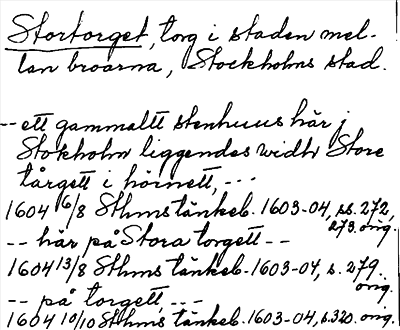 Stortorget, torg i staden mel-
lan broarna, Stockholms stad.
-- ett gammaltt stenhuus här j
Stokholm liggendes widhr Store
tårgett i hörnett, ---
1604 6/8 Sthms tänkeb. 1603-04, ss. 272,
273. orig.
-- här på Stora torgett --
1604 13/8 Sthms tänkeb. 1603-04, s. 279.
orig.
-- på torgett, ---
1604 10/10 Sthms tänkeb. 1603-04, s. 320. orig.